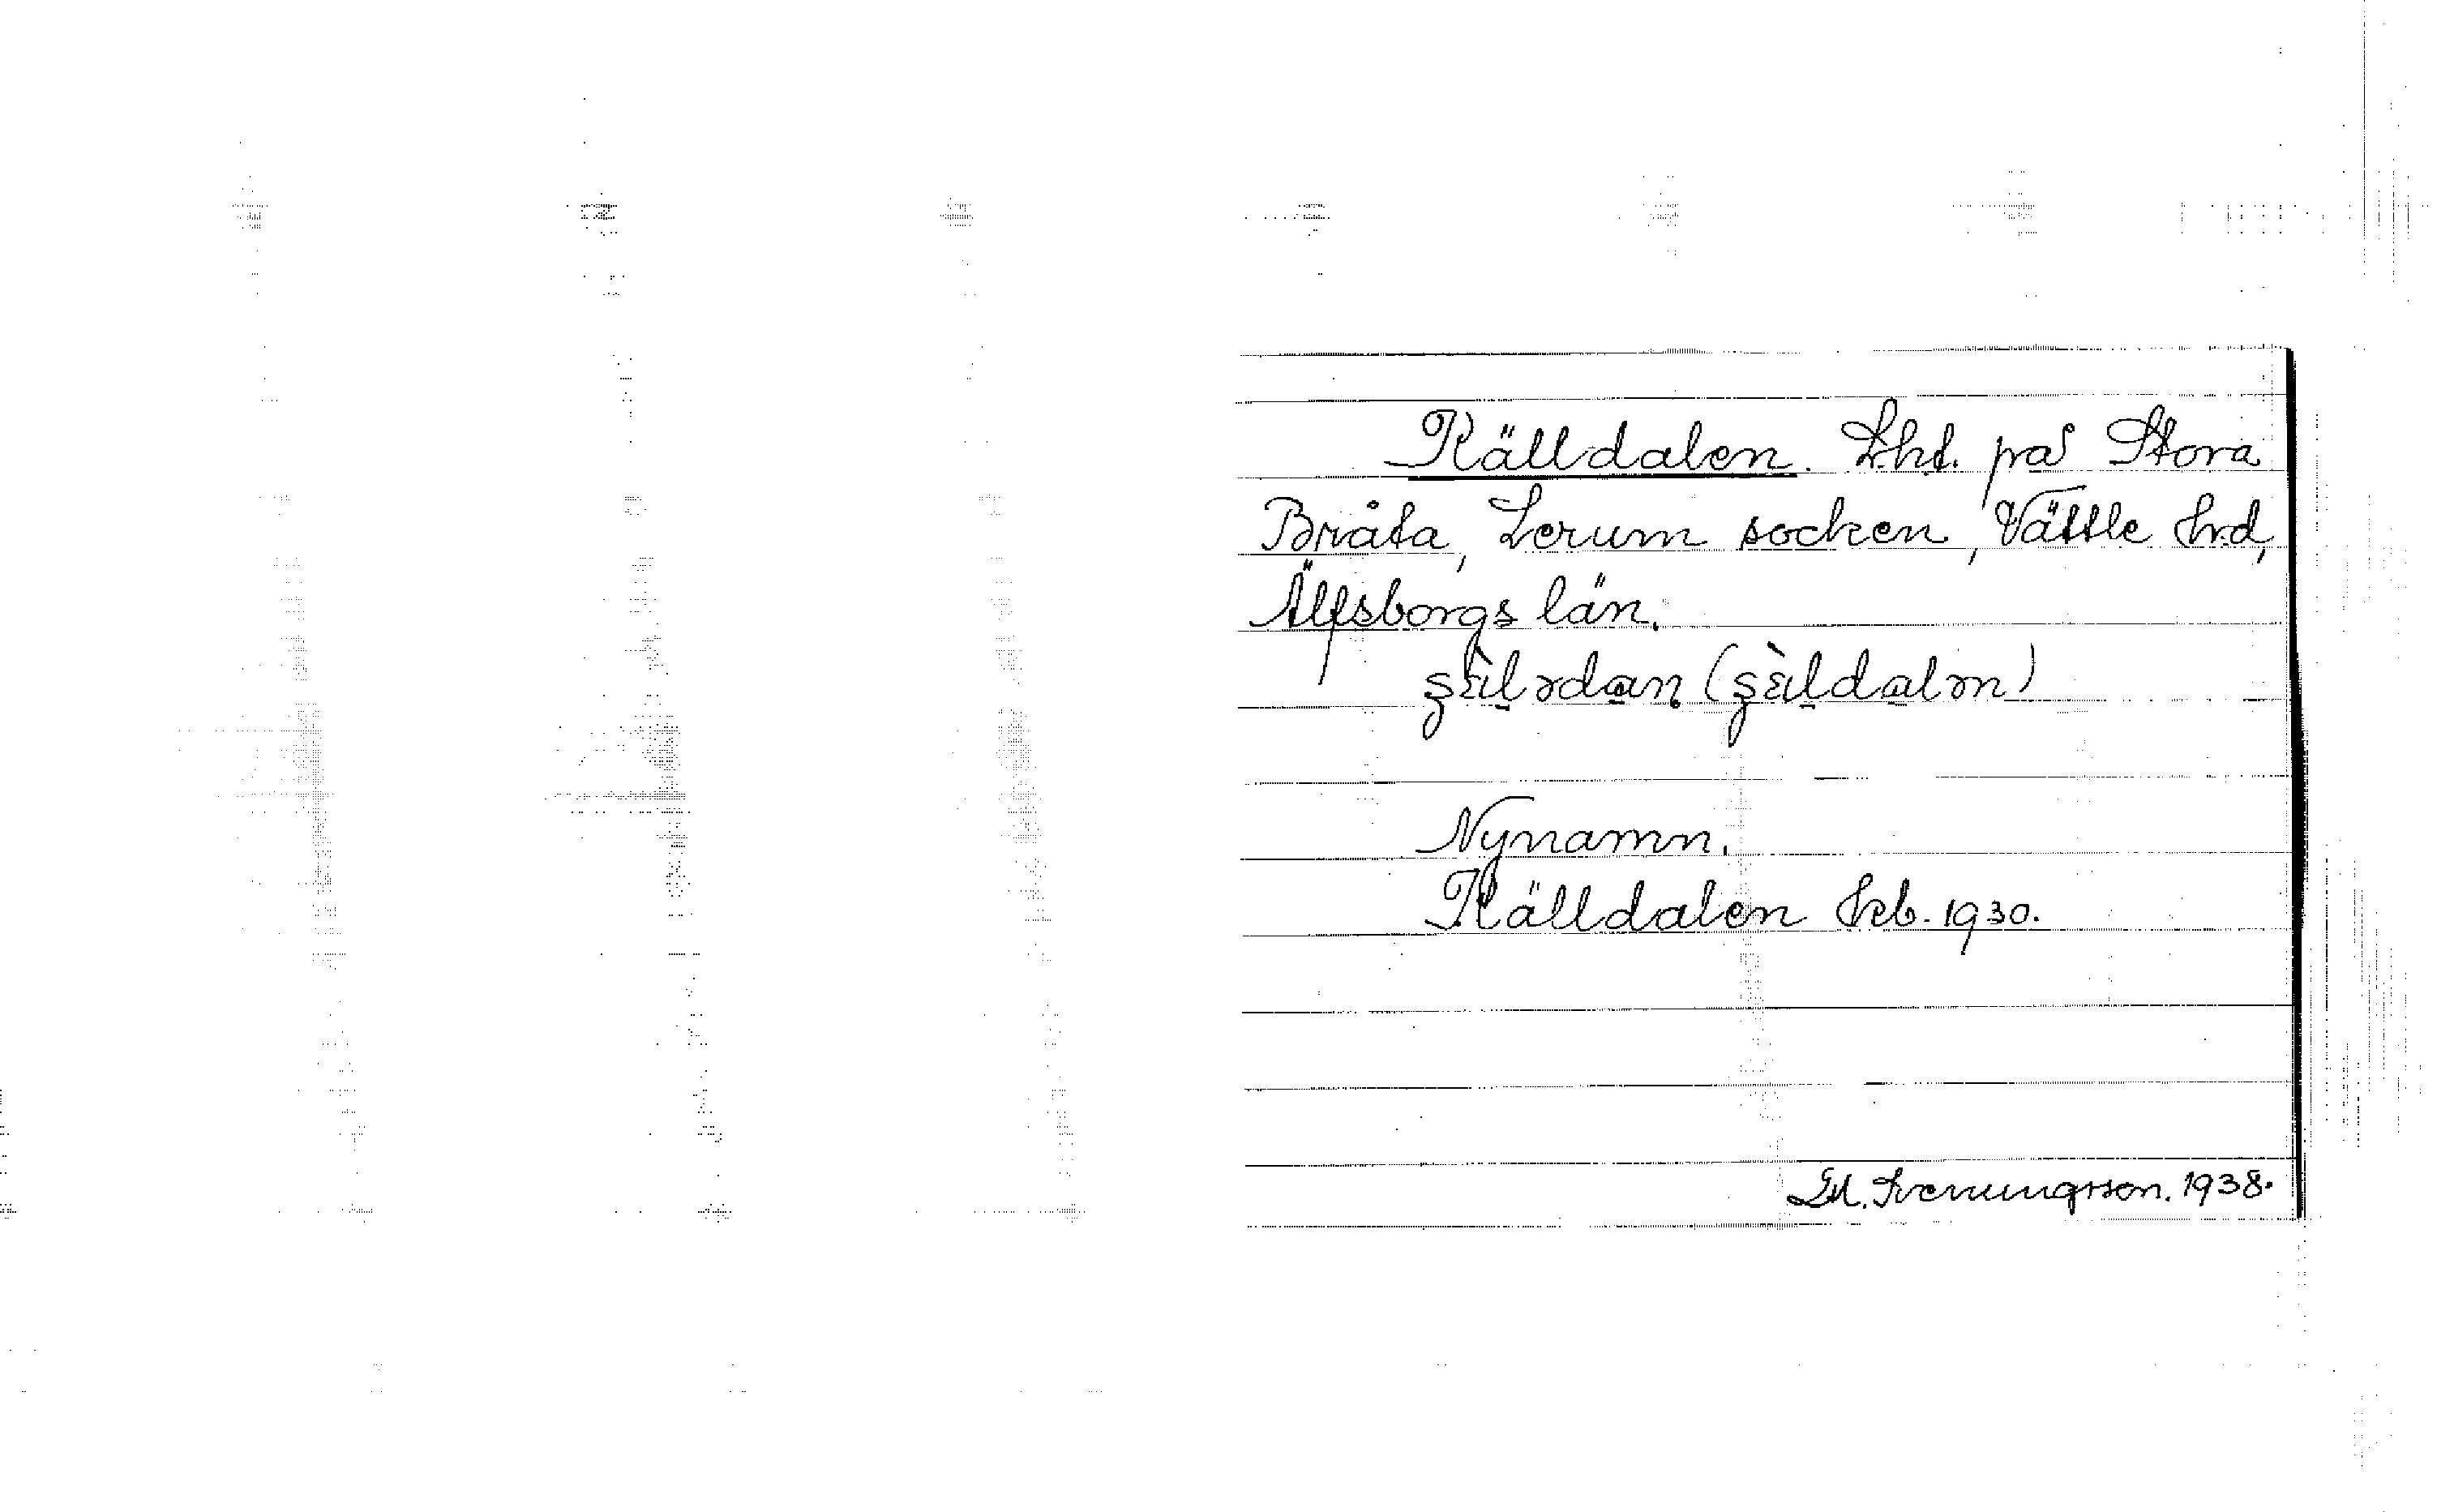 Källdalen. Lht. på Stora
Bråta, Lerum socken, Vättle hrd,
Älfsborgs län.
Nynamn.
Källdalen Frb. 1930.
M. Svenungsson. 1938.